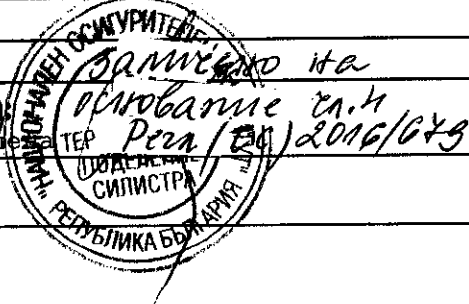 "НАЦИОНАЛЕН ОСИГУРИТЕЛЕН
заличено на
основание чл.4
ТЕР Регл (ЕС) 2016/679
ПОДЕЛЕНИЕ
СИЛИСТРА
РЕПУБЛИКА БЪЛГАРИЯ